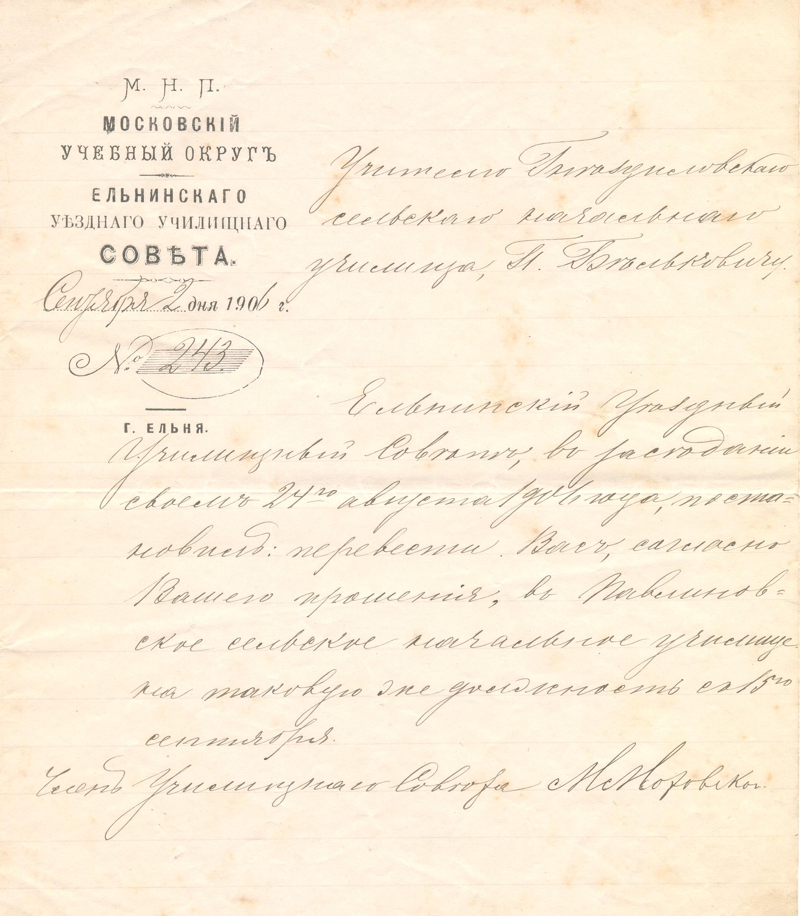 М. Н. П.
МОСКОВСКІЙ
УЧЕБНЫЙ ОКРУГЪ
ЕЛЬНИНСКАГО
УѢЗДНАГО УЧИЛИЩНАГО
СОВѢТА.
Сентября 2 дня 1906 г.
№ 243.
Г. ЕЛЬНЯ.
Учителю
сельскаго начальнаго
училища, П. Бѣльковичу.
Ельнинскій Уѣздный
Училищный Совѣтъ, въ засѣданіи
своемъ 24го августа 1906 года, поста-
новилъ: перевести Васъ, согласно
Вашего прошенія, въ Павлинов-
ское сельское начальное училище
на таковую же должность съ 15го
сентября.
Членъ Училищнаго Совѣта